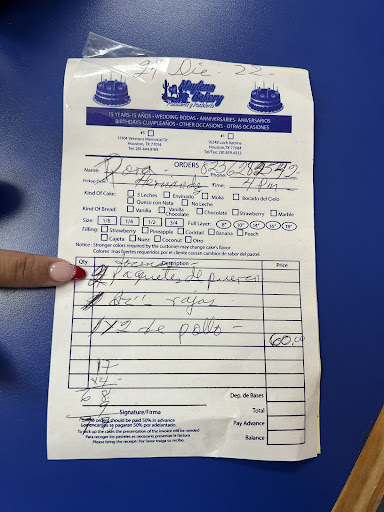 21 Dic. 22-
Bakery
Panaderia y Pasteleria
15 YEARS-15 AÑOS • WEDDING-BODAS • ANNIVERSARIES- ANIVERSARIOS
BIRTHDAYS-CUMPLEAÑOS • OTHER OCCASIONS - OTRAS OCASIONES
#1
13104 Veterans Memorial Dr.
Houston, TX 77014
#5
Houston, TX 77068
ORDERS
Name: Rosa Hernandez
Phone
Time: 4 PM
Kind Of Cake: 3 Leches Envinado Moka Bocado del Cielo
Queso con Nata No Leche
Kind Of Bread: Vanilla Vanilla Chocolate Chocolate Strawberry Marble
Size: 1/8 1/4 1/2 3/4 Full Layer: 8" 10" 14" 16" 18"
Filling: Strawberry Pineapple Cocktail Banana Peach
Cajeta Nuez Coconut Otro
Notice : Stronger colors required by the customer may change cake's flavor
Colores mas fuertes requeridos por el cliente causan cambios de sabor del pastel.
Qty Description Price
2 Paquetes de puerco
rajas
1 1/2 de pollo -
60.00
17
Dep. de Bases
Signature/Firma
Total
orders should be paid 50% in advance
Los encargos se pagaran 50% por adelantado.
Pay Advance
To pick up the cakes the presentation of the invoice will be needed
Para recoger los pasteles es necesario presentar la factura
Balance
Please bring the receipt/ Por favor traiga su recibo